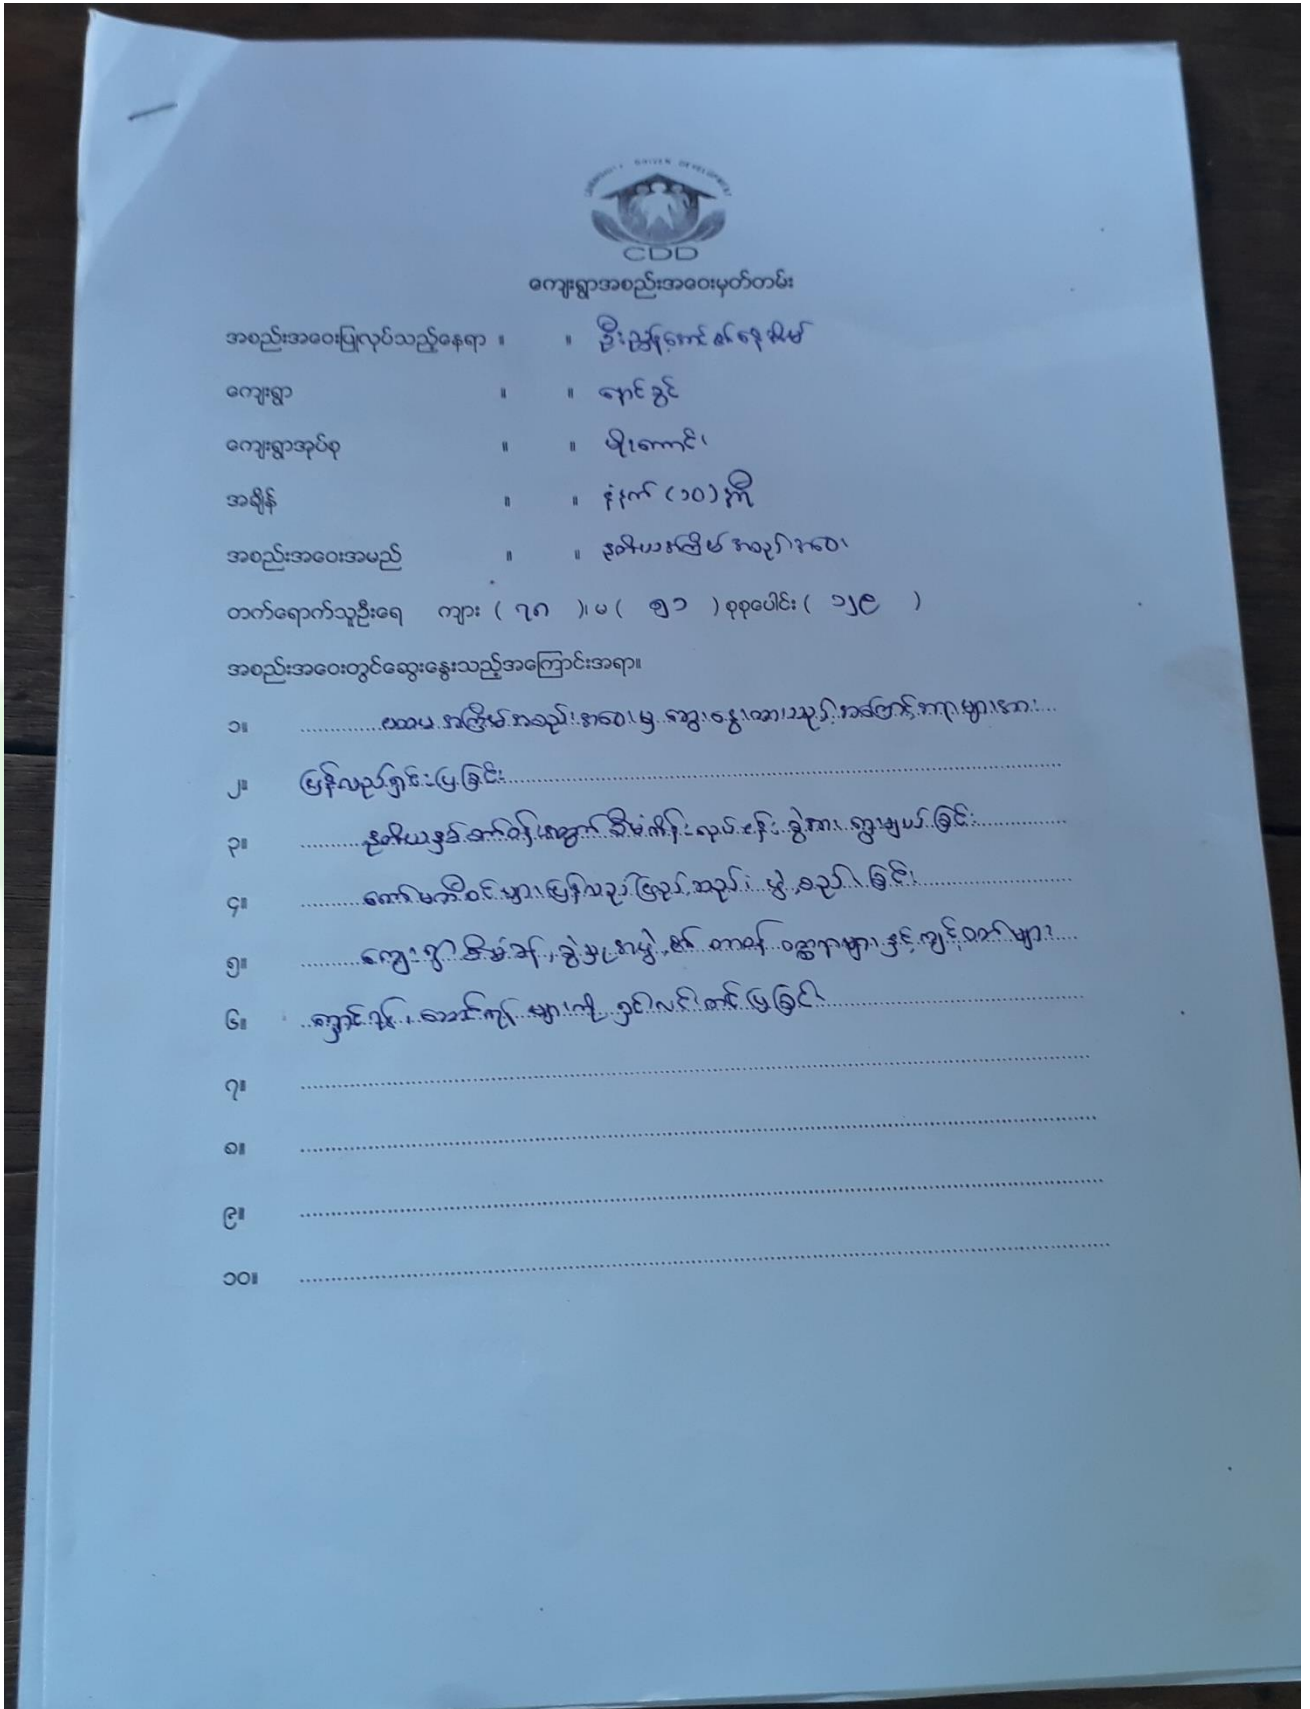 COMMUNITY DRIVEN DEVELOPMENT
CDD
ကျေးရွာအစည်းအဝေးမှတ်တမ်း
အစည်းအဝေးပြုလုပ်သည့်နေရာ ။ ။ ဦးညွန့်အောင်၏နေအိမ်
ကျေးရွာ ။ ။ နောင်ခွင်
ကျေးရွာအုပ်စု ။ ။ မိုးကောင်း
အချိန် ။ ။ နံနက် (၁၀) နာရီ
အစည်းအဝေးအမည် ။ ။ ဒုတိယအကြိမ် အစည်းအဝေး
တက်ရောက်သူဦးရေ ကျား ( ၇၈ )၊ မ ( ၅၁ ) စုစုပေါင်း ( ၁၂၉ )
အစည်းအဝေးတွင်ဆွေးနွေးသည့်အကြောင်းအရာ။
၁။ ပထမ အကြိမ် အစည်းအဝေးမှ ဆွေးနွေးထားသည့် အကြောင်းအရာများအား
၂။ ပြန်လည်ရှင်းပြခြင်း
၃။ ဒုတိယနှစ် စက်ဝန်းအတွက် စီမံကိန်းလုပ်ငန်းခွဲအား ရွေးချယ်ခြင်း
၄။ ကော်မတီဝင်များ ပြန်လည်ဖြည့်ဆည်း ဖွဲ့စည်းခြင်း
၅။ ကျေးရွာစီမံခန့်ခွဲမှုအဖွဲ့၏ တာဝန် ဝတ္တရားများနှင့် ကျင့်ဝတ်များ
၆။ ရှောင်ရန်၊ ဆောင်ရန် များကို ရှင်းလင်းတင်ပြခြင်း
၇။
၈။
၉။
၁၀။